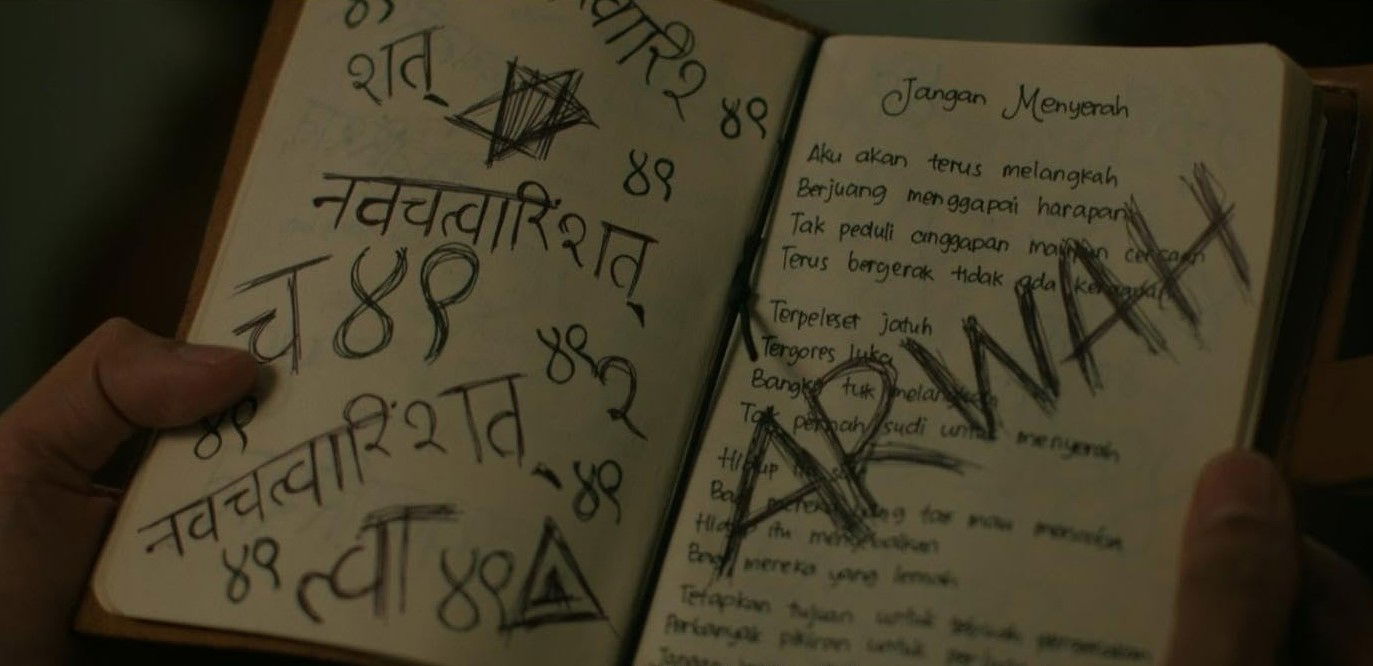 ४१
शत्
वारि२
४१
४१
नवचत्वारिंशत्
च ४१
४१
२
४१
नवचत्वारिंशत्
४१
४१
त्वा ४१
Jangan Menyerah
Aku akan terus melangkah
Berjuang menggapai harapan
Tak peduli anggapan maupun cercaan
Terus bergerak tidak ada
Terpeleset jatuh
Tergores luka
Bangkit tuk melangkah
Tak pernah sudi untuk menyerah
Hidup itu
Bagi mereka yang tak mau
Hidup itu
Bagi mereka yang lemah
Tetapkan tujuan untuk
Perbanyak pikiran untuk
Jangan
ARWAH